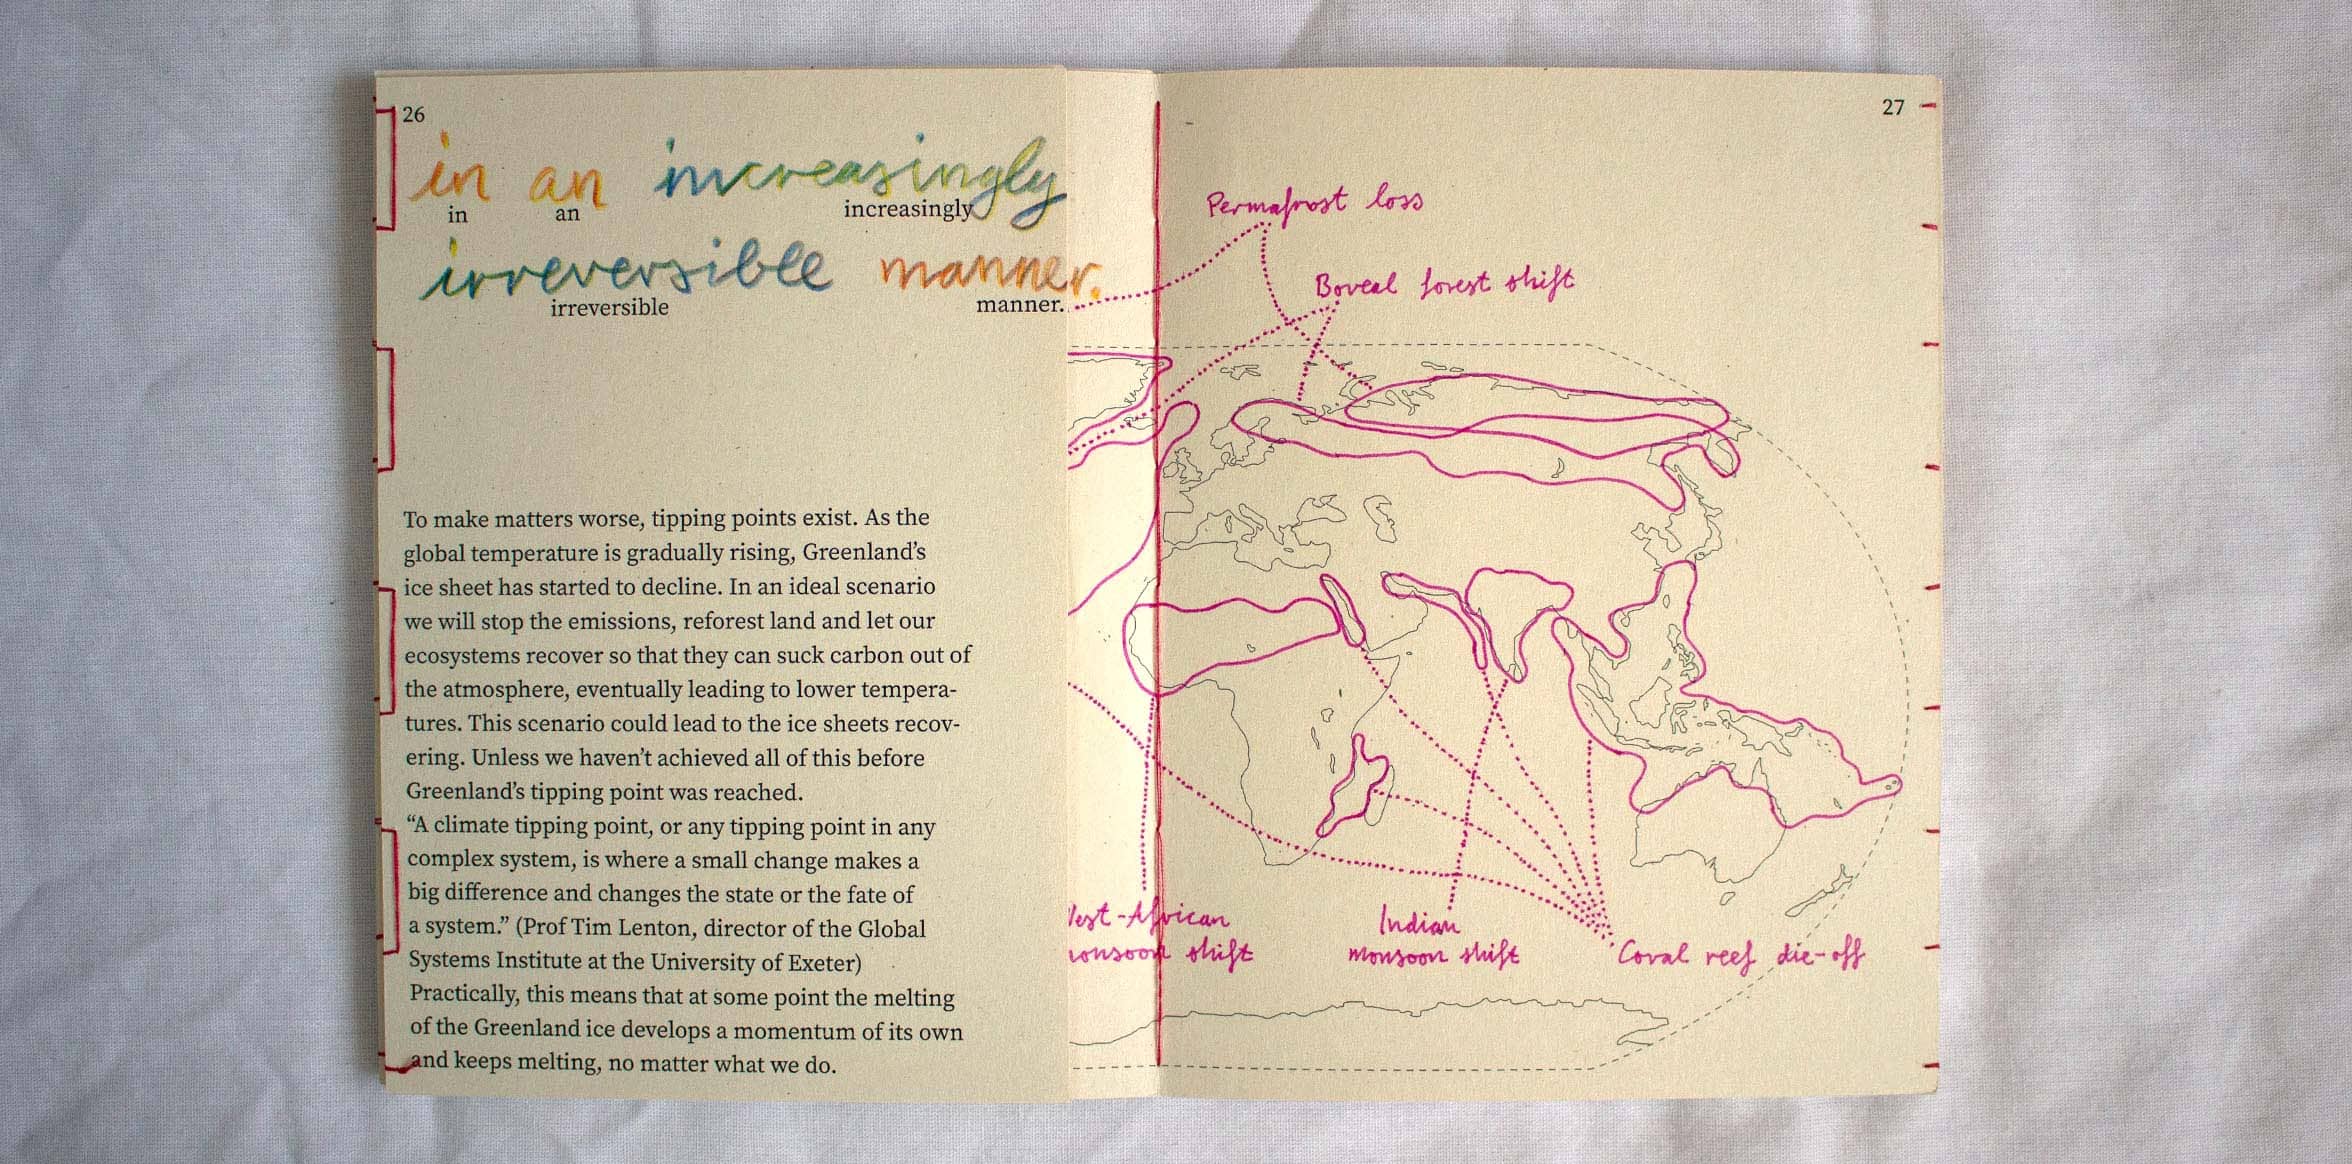 26
in an increasingly
in an increasingly
irreversible manner.
irreversible manner.
To make matters worse, tipping points exist. As the
global temperature is gradually rising, Greenland’s
ice sheet has started to decline. In an ideal scenario
we will stop the emissions, reforest land and let our
ecosystems recover so that they can suck carbon out of
the atmosphere, eventually leading to lower tempera-
tures. This scenario could lead to the ice sheets recov-
ering. Unless we haven’t achieved all of this before
Greenland’s tipping point was reached.
“A climate tipping point, or any tipping point in any
complex system, is where a small change makes a
big difference and changes the state or the fate of
a system.” (Prof Tim Lenton, director of the Global
Systems Institute at the University of Exeter)
Practically, this means that at some point the melting
of the Greenland ice develops a momentum of its own
and keeps melting, no matter what we do.
27
Permafrost loss
Boreal forest shift
West-African
monsoon shift
Indian
monsoon shift
Coral reef die-off